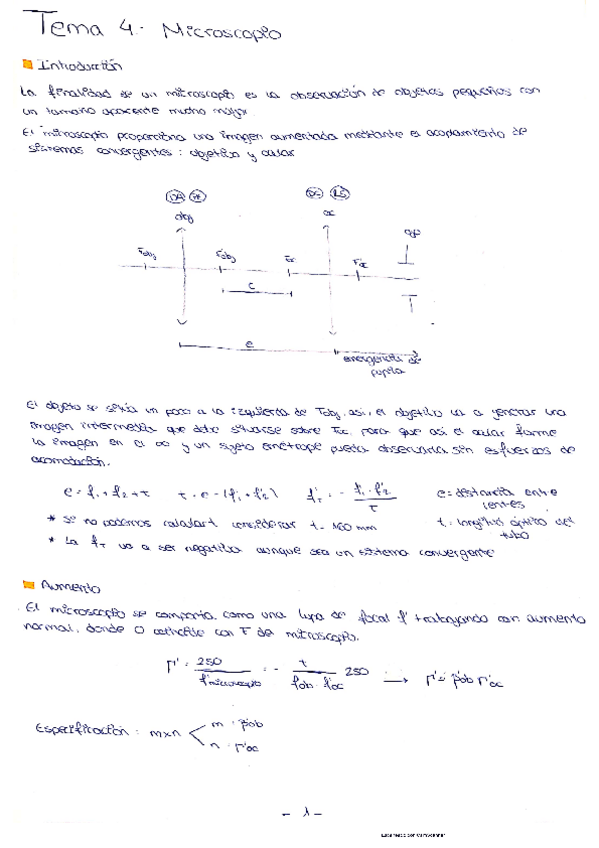 Tema 4.- Microscopio
Introducción
La finalidad de un microscopio es la observación de objetos pequeños con
un tamaño aparente mucho mayor.
El microscopio proporciona una imagen aumentada mediante el acoplamiento de
sistemas convergentes: objetivo y ocular
DA PE DC LS
obj oc
Fobj F'obj Foc F'oc
c
e
emergencia de
pupila
El objeto se sitúa un poco a la izquierda de Fobj, así, el objetivo va a generar una
imagen intermedia que debe situarse sobre Foc, para que así el ocular forme
la imagen en el ∞ y un sujeto emétrope pueda observarla sin esfuerzos de
acomodación.
e = f'1 + f'2 + t t = e - (f'1 + f'2) f'T = - f'1 · f'2 / t e = distancia entre
lentes
* Si no podemos calcular t considerar t = 160 mm t = longitud óptica del
tubo
* La f'T va a ser negativa aunque sea un sistema convergente
Aumento
El microscopio se comporta como una lupa de focal f' trabajando con aumento
normal, donde O coincide con F del microscopio.
Γ' = 250 / f'microscopio = - t / f'ob · f'oc 250 → Γ' = β'ob Γ'oc
Especificación: mxn
m = β'ob
n = Γ'oc
- 1 -